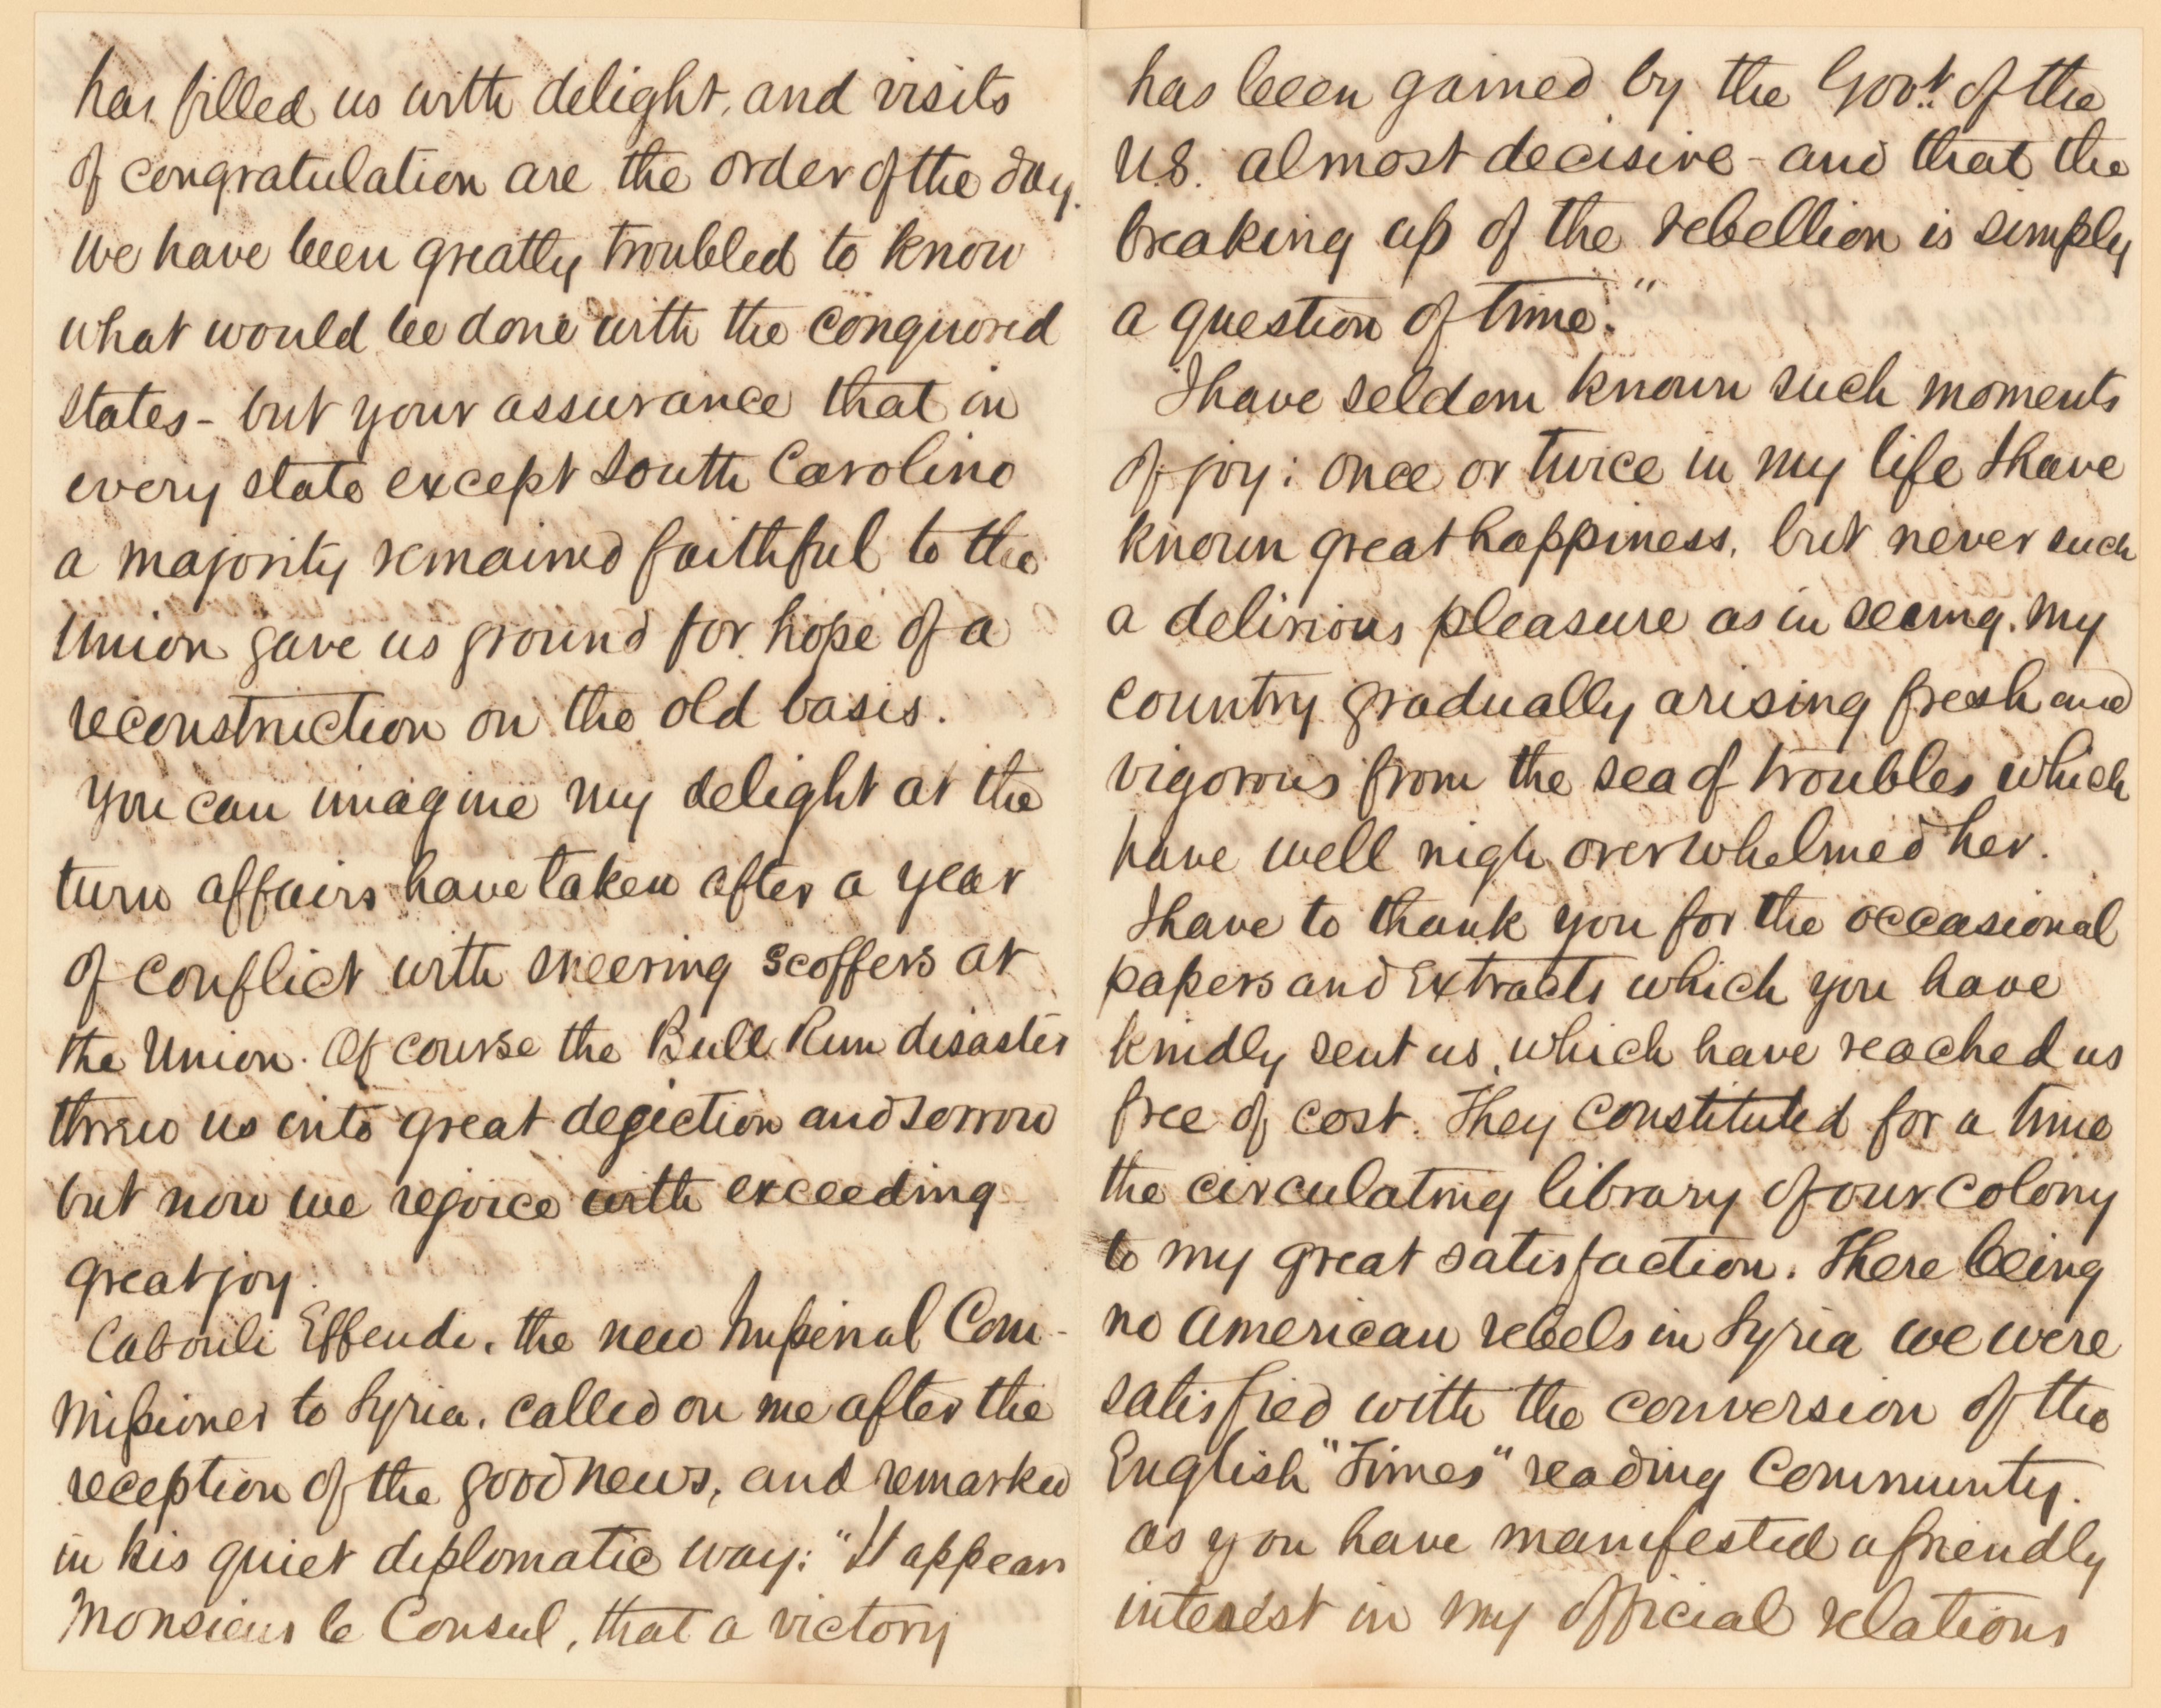 has filled us with delight, and visits
of congratulation are the order of the day.
We have been greatly troubled to know
what would be done with the conquored
states - but your assurance that in
every state except South Carolina
a majority remained faithful to the
Union gave us ground for hope of a
reconstruction on the old basis.
You can imagine my delight at the
turn affairs have taken after a year
of conflict with sneering scoffers at
the Union. Of course the Bull Run disaster
threw us into great dejection and sorrow
but now we rejoice with exceeding
great joy.
Cabouli Effendi, the new Imperial Com-
missioner to Syria, called on me after the
reception of the good news, and remarked
in his quiet diplomatic way: "It appears
Monsieur le Consul, that a victory
has been gained by the Govt. of the
U.S. almost decisive - and that the
breaking up of the rebellion is simply
a question of time."
I have seldom known such moments
of joy: once or twice in my life I have
known great happiness, but never such
a delirious pleasure as in seeing my
country gradually arising fresh and
vigorous from the sea of troubles which
have well nigh overwhelmed her.
I have to thank you for the occasional
papers and Extracts which you have
kindly sent us, which have reached us
free of cost. They constituted for a time
the circulating library of our colony
to my great satisfaction. There being
no American rebels in Syria we were
satisfied with the conversion of the
English "Times" reading Community.
As you have manifested a friendly
interest in my official relations